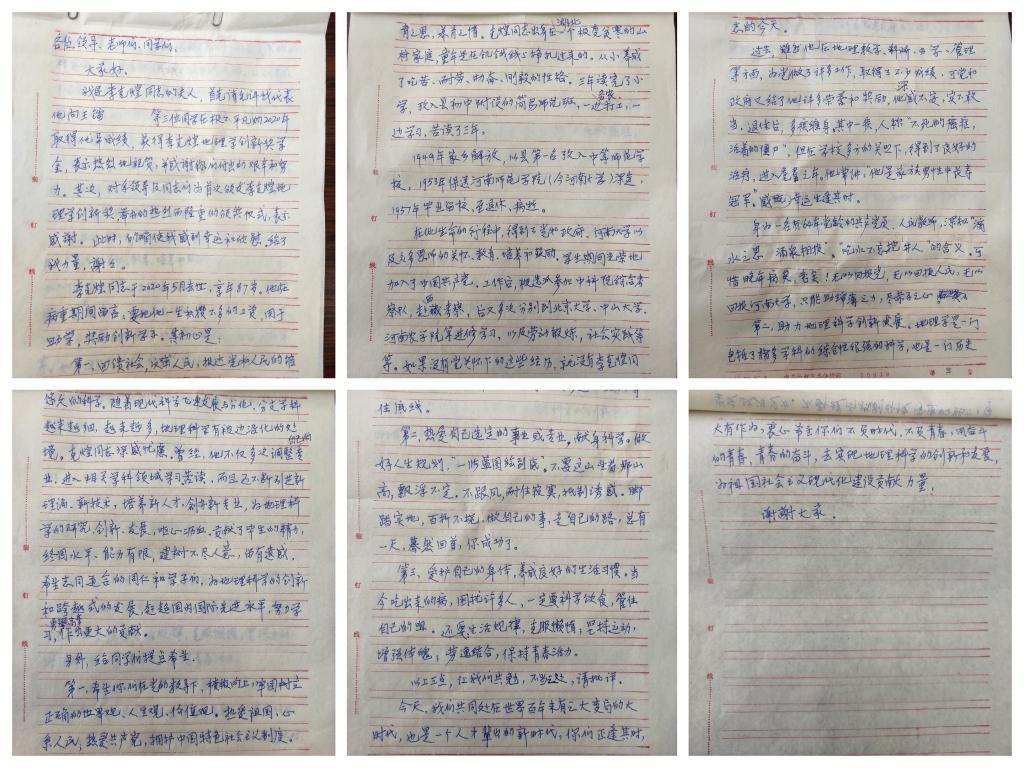 各位领导、老师们、同学们:
大家好。
我是李克煌同志的夫人,首先请允许我代表
他向王 第三位同学在极不平凡的2020年
取得优异成绩,获得李克煌地理学创新奖学
金,表示热烈地祝贺,并感谢你们付出的艰辛和努
力。其次,对各领导及同志们为首次颁发李克煌地
理学创新奖 举办的热烈而隆重的颁奖仪式,表示
感谢。此时,的确使我感到幸运和欣慰,给了
我力量,谢谢。
李克煌同志于2020年5月去世,享年87岁。他在
病重期间留言,要把他一生积攒不多的工资,用于
助学,奖励创新学子。其初心是:
第一,回馈社会,决策人民,报达党和人民的培
育之恩,养育之情。克煌同志出身在湖北一个极度贫寒的山
村家庭,童年是在饥饿线上挣扎过来的。从小养成
了吃苦、耐劳、勤奋、刚毅的性格。三年读完了小
学,考入县初中附设的简易师范班,一边打工,一
边学习,苦读了三年。
1949年家乡解放,以县第一名考入中等师范学
校,1953年保送河南师范学院(今河南大学)深造,
1957年毕业留校,至退休、病逝。
在他生命的行程中,得到了党和政府、河南大学以
及众多恩师的关怀、教育、培养和鼓励。学生期间光荣地
加入了中国共产党。工作后,被选参加中科院综合考
察队赴西藏考察,后又多次分别到北京大学、中山大学、
河南农学院等进修学习,以及劳动锻炼,社会实践等
等。如果没有党关怀下的这些经历,就没有李克煌同
志的今天。
过去,虽然他在地理教学、科研、办学、管理
等方面,为党做了许多工作,取得了不少成绩,可党和
政府又给了他许多荣誉和奖励,他深感不定,实不敢
当。退休后,多疾缠身,其中一疾,人称“不死的癌症,
活着的僵尸”,但在学校多方的关照下,得到了良好的
治疗,进入耄耋之年。他常讲,他是家族男性中长寿
冠军。感恩幸运生逢其时。
身为一名有的年党龄的共产党员、人民教师,深知“滴
水之恩 涌泉相报”、“吃水不忘挖井人”的含义。可
惜晚年病魔,奈奈!无以回报党,无以回报人民,无以
回报河南大学,只能助绵薄之力,尽寸草之心
第二,助力地理科学创新发展。地理学是一门
包括了诸多学科的综合性很强的科学,也是一门历史
悠久的科学。随着现代科学飞速发展与分化,分支学科
越来越细,越来越多,地理科学有被边沿化的处
境。克煌同志深感忧虑。曾经,他不仅多次调整自己的专
业,进入相关学科领域学习苦读,而且还不断引进新
理论、新技术,培养新人才,创办新专业,为地理科
学的研究、创新、发展,呕心沥血,贡献了毕生的精力,
终因水平、能力有限,建树不尽人意,留有遗憾。
希望志同道合的同仁和学子们,为地理科学的创新
和跨越式的发展,赶超国内国际先进水平,努力学
习,勇攀高峰,作出更大的贡献。
另外,给同学们提点希望。
第一,希望你们在党的教导下,积极向上,牢固树立
正确的世界观、人生观、价值观。热爱祖国,心
系人民,热爱共产党,拥护中国特色社会主义制度。
住底线。
第二,热爱自己选定的事业或专业。献身科学。做
好人生规划,“一张蓝图绘到底”。不要这山望着那山
高,飘浮不定。不跟风,耐住寂寞,抵制诱惑。脚
踏实地,百折不挠,做自己的事,走自己的路,总有
一天,蓦然回首,你成功了。
第三,爱护自己的身体,养成良好的生活习惯。当
今吃出来的病,困扰许多人,一定要科学饮食,管住
自己的嘴。还要生活规律,克服懒惰,坚持运动,
增强体魄,劳逸结合,保持青春活力。
以上三点,让我们共勉,不当之处,请批评。
今天,我们共同处在世界百年未有之大变局的大
时代,也是一个人才辈出的新时代,你们正逢其时,
大有作为,衷心希望你们不负时代,不负青春,用奋斗
的青春,青春的奋斗,去实现地理科学的创新和发展,
为祖国社会主义现代化建设贡献力量!
谢谢大家。
装
订
线